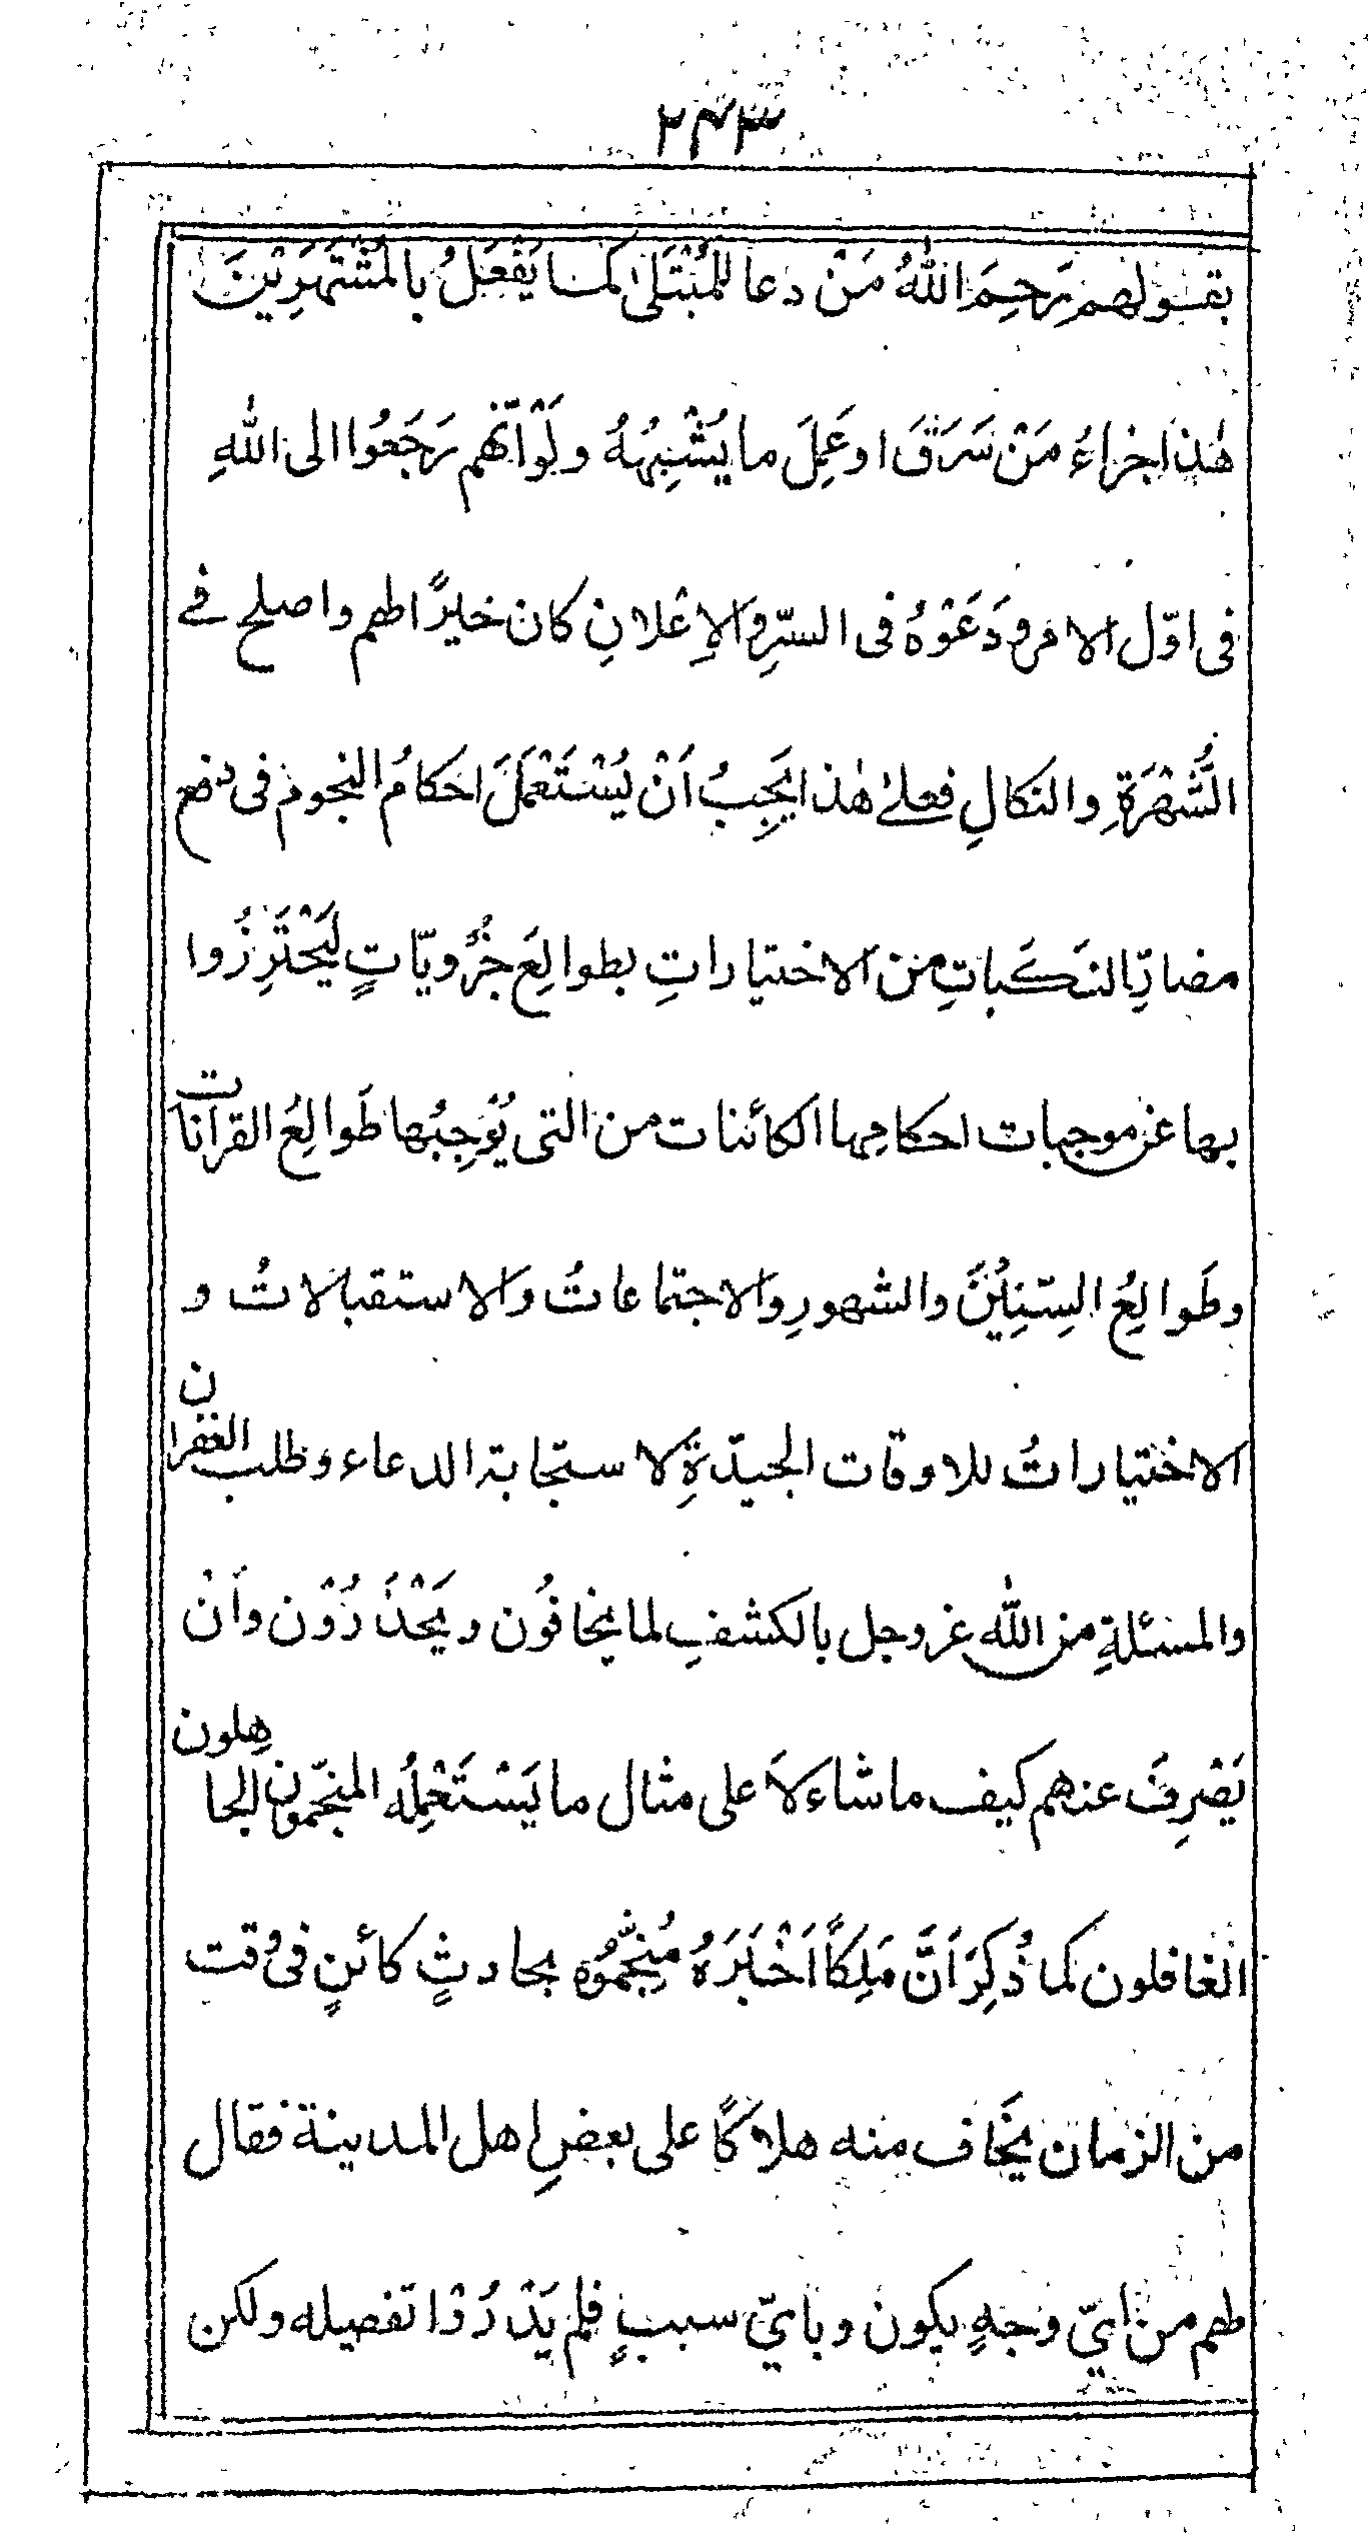 ۲۴۳
بقولهم رَحِمَ اللّٰهُ مَنْ دعا للمُبْتَلىٰ كما يَفْعَلُ بالمُشْتَهَرِيْنَ
هٰذا جزاءُ مَنْ سَرَقَ او عَمِلَ ما يُشْبِهُهُ ولَوْ انّهم رَجَعُوا الى اللّٰهِ
فى اوّل الامر ودَعَوْهُ فى السرِّ والاِعْلانِ كان خيرًا لهم واصلح فے
الشُّهْرَةِ والنكالِ فعلىٰ هٰذا يَجِبُ اَنْ يُسْتَعْمَلَ احكامُ النجوم فى دفع
مضارِّ النَكَباتِ من الاختياراتِ بطوالِعَ جُزْوِيّاتٍ لِيَحْتَرِزُوا
بها عن موجبات احكامِها الكائنات من التى يُوْجِبُها طَوالِعُ القرانات
وطَوالِعُ السِّنِيْنَ والشهورِ والاجتماعاتُ والاستقبالاتُ و
الاختياراتُ للاوقات الجيّدةِ لاستجابة الدعاء وطلب الغفران
والمسئلةِ من اللّٰه عز وجل بالكشفِ لما يخافُون ويَحْذَرُوْن واَنْ
يَصْرِفَ عنهم كيف ما شاء لاَ على مثال ما يَسْتَعْمِلُه المنجّمون الجاهِلون
الغافلون كما ذُكِرَ اَنَّ مَلِكًا اَخْبَرَهُ مُنَجِّمُوْه بحادثٍ كائنٍ فى وقت
من الزمان يخَاف منه هلاكًا على بعضِ اهل المدينة فقال
لهم من ايّ وجهٍ يكون وبايّ سببٍ فلم يَدْرُوْا تفصيله ولكن